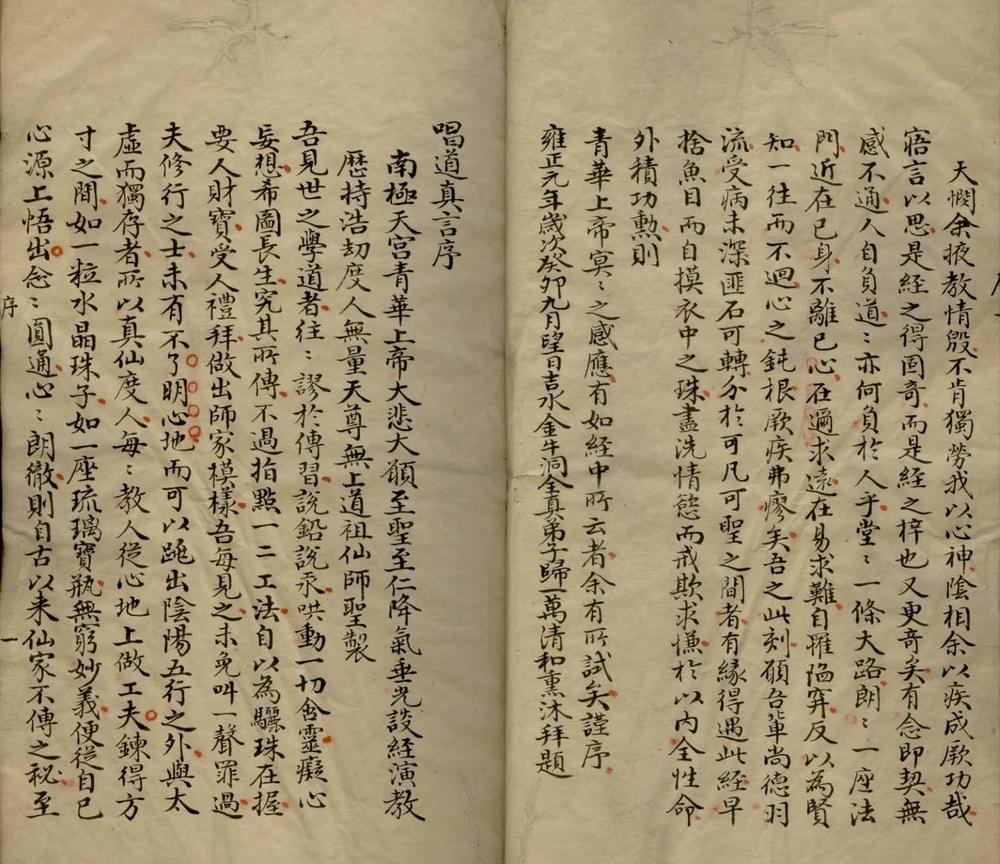 天憫余掖教情殷不肯獨勞我以心神陰相余以疾成厥功哉
寤言以思是經之得固奇而是經之梓也又更奇矣有念即契無
感不通人自負道道亦何負於人乎堂堂一條大路朗朗一座法
門近在己身不離己心在邇求遠在易求難自罹陷穽反以為賢
知一往而不迴心之鈍根厥疾弗瘳矣吾之此刻願吾輩尚德羽
流受病未深匪石可轉分於可凡可聖之間者有緣得遇此經早
捨魚目而自摸衣中之珠盡洗情慾而戒欺求慊於以內全性命
外積功勲則
青華上帝冥冥之感應有如經中所云者余有所試矣謹序
雍正元年歲次癸卯九月望日吉水金牛洞全真弟子歸一萬清和熏沐拜題
唱道真言序
南極天宮青華上帝大悲大願至聖至仁降氣垂光談經演教
歷持浩劫度人無量天尊無上道祖仙師聖製
吾見世之學道者往ミ謬於傳習說鉛說汞哄動一切含靈癡心
妄想希圖長生究其所傳不過指點一二工法自以為驪珠在握
要人財寶受人禮拜做出師家模樣吾每見之未免叫一聲罪過
夫修行之士未有不了明心地而可以跳出陰陽五行之外與太
虛而獨存者所以真仙度人每ミ教人從心地上做工夫鍊得方
寸之間如一粒水晶珠子如一座琉璃寶瓶無窮妙義便從自己
心源上悟出念ミ圓通心ミ朗徹則自古以來仙家不傳之秘至
序
一